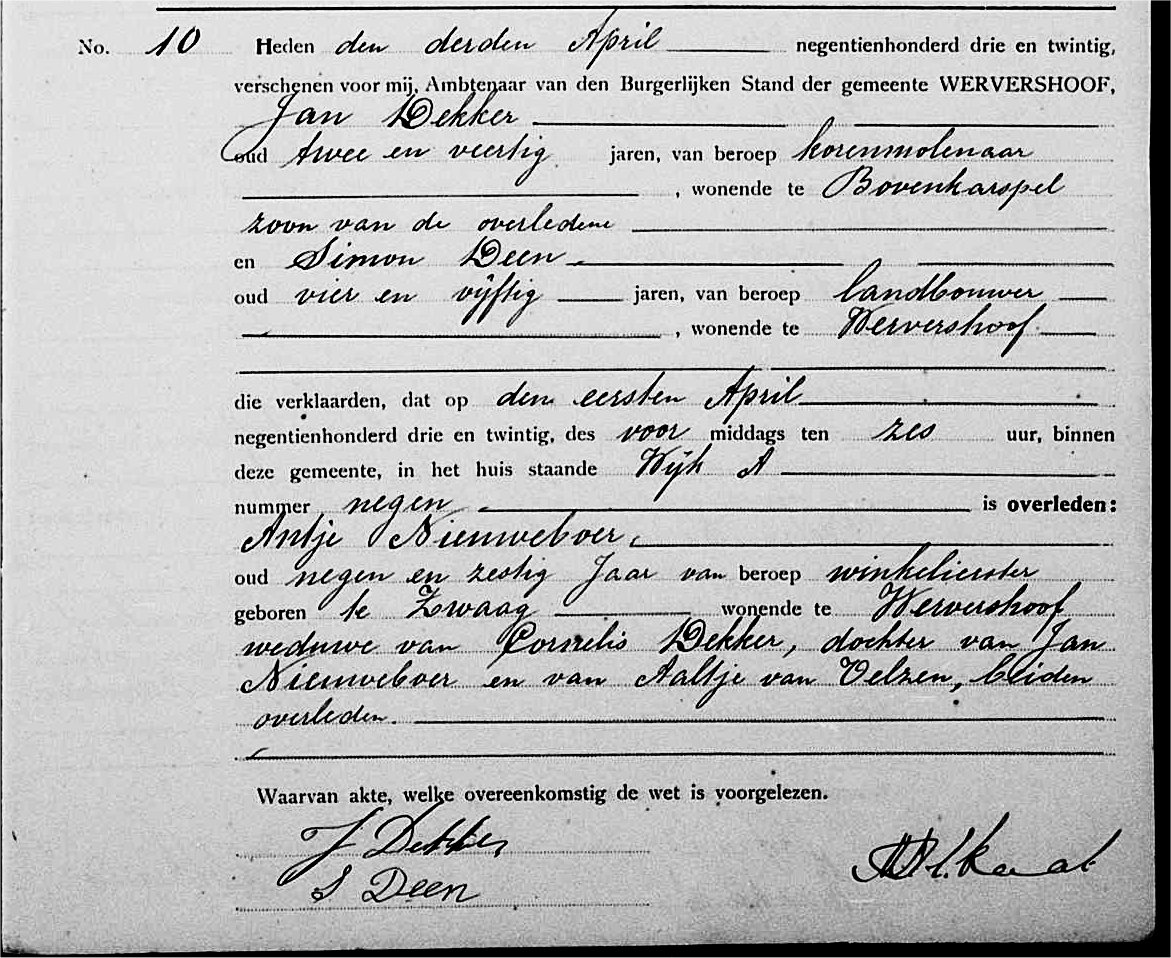 No. 10 Heden den derden April negentienhonderd drie en twintig,
verschenen voor mij, Ambtenaar van den Burgerlijken Stand der gemeente WERVERSHOOF,
Jan Dekker
oud twee en veertig jaren, van beroep korenmolenaar
, wonende te Bovenkarspel
zoon van de overledene
en Simon Deen
oud vier en vijftig jaren, van beroep landbouwer
, wonende te Wervershoof
die verklaarden, dat op den eersten April
negentienhonderd drie en twintig, des voor middags ten zes uur, binnen
deze gemeente, in het huis staande Wijk A
nummer negen is overleden:
Antje Nieuweboer,
oud negen en zestig Jaar van beroep winkelierster
geboren te Zwaag wonende te Wervershoof
weduwe van Cornelis Dekker, dochter van Jan
Nieuweboer en van Aaltje van Velzen, beiden
overleden.
Waarvan akte, welke overeenkomstig de wet is voorgelezen.
J Dekker
S Deen